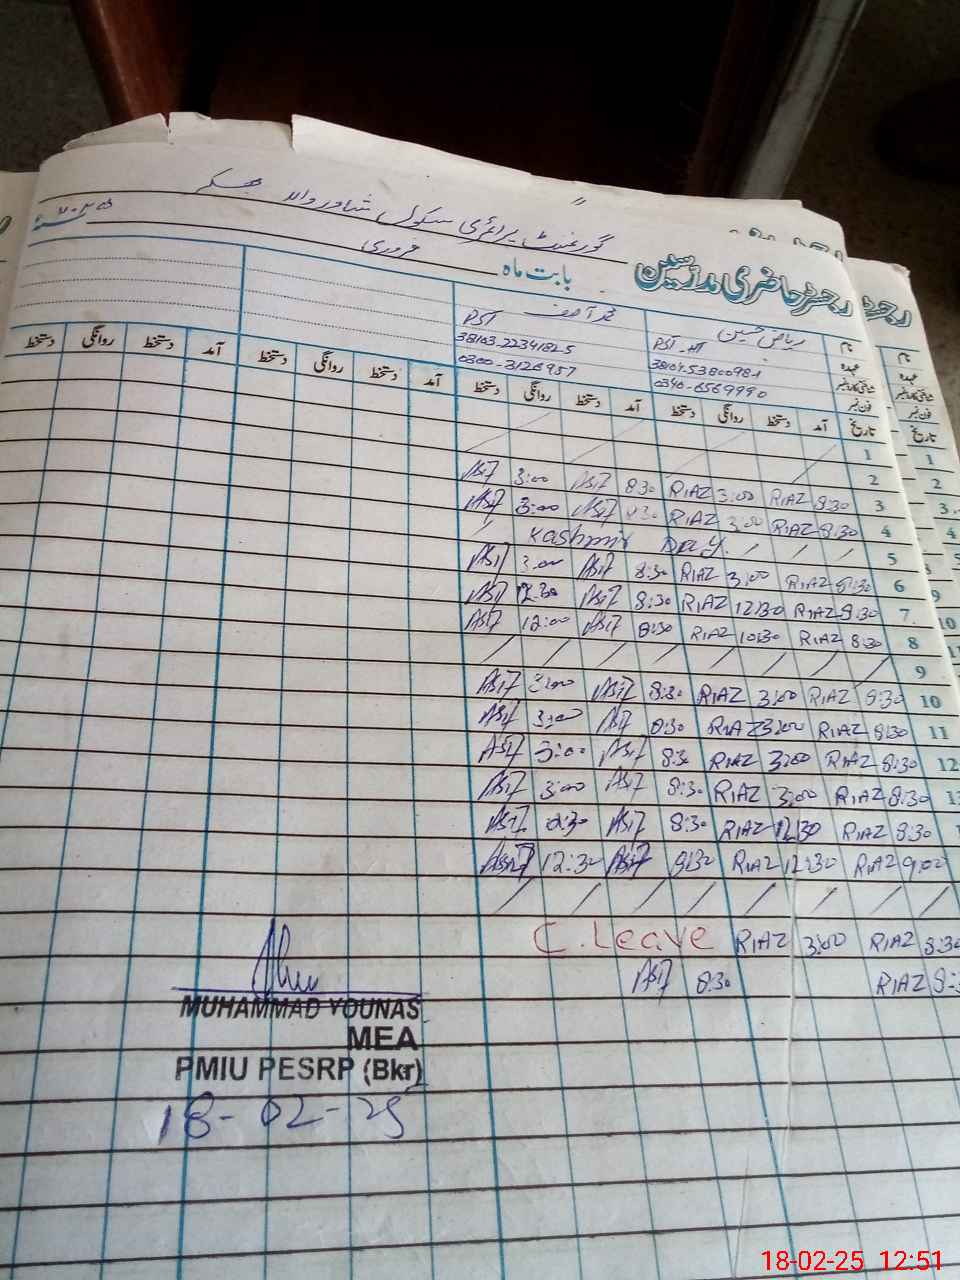 گورنمنٹ پرائمری سکول شاہ والا بھکر
رجسٹر حاضری مدرسین بابت ماہ فروری ۲۰۲۵
نام ریاض حسین محمد آصف
عہدہ PST-HT PST
شناختی کارڈ نمبر 38104-5380098-1 38103-2234182-5
فون نمبر 0340-6569990 0300-3126957
تاریخ آمد دستخط روانگی دستخط آمد دستخط روانگی دستخط آمد دستخط روانگی دستخط آمد دستخط روانگی دستخط
1
2
3 8:30 RIAZ 3:00 RIAZ 8:30 Asif 3:00 Asif
4 8:30 RIAZ 3:00 RIAZ 8:30 Asif 3:00 Asif
5 Kashmir Day
6 8:30 RIAZ 3:00 RIAZ 8:30 Asif 3:00 Asif
7 8:30 RIAZ 12:30 RIAZ 8:30 Asif 12:30 Asif
8 8:30 RIAZ 10:30 RIAZ 8:30 Asif 12:00 Asif
9
10 8:30 RIAZ 3:00 RIAZ 8:30 Asif 3:00 Asif
11 8:30 RIAZ 3:00 RIAZ 8:30 Asif 3:00 Asif
12 8:30 RIAZ 3:00 RIAZ 8:30 Asif 3:00 Asif
8:30 RIAZ 3:00 RIAZ 8:30 Asif 3:00 Asif
8:30 RIAZ 12:30 RIAZ 8:30 Asif 12:30 Asif
9:00 RIAZ 12:30 RIAZ 8:30 Asif 12:30 Asif
8:30 RIAZ 3:00 RIAZ C. Leave
RIAZ 8:30 Asif
MUHAMMAD YOUNAS
MEA
PMIU PESRP (Bkr)
18-02-25
18-02-25 12:51